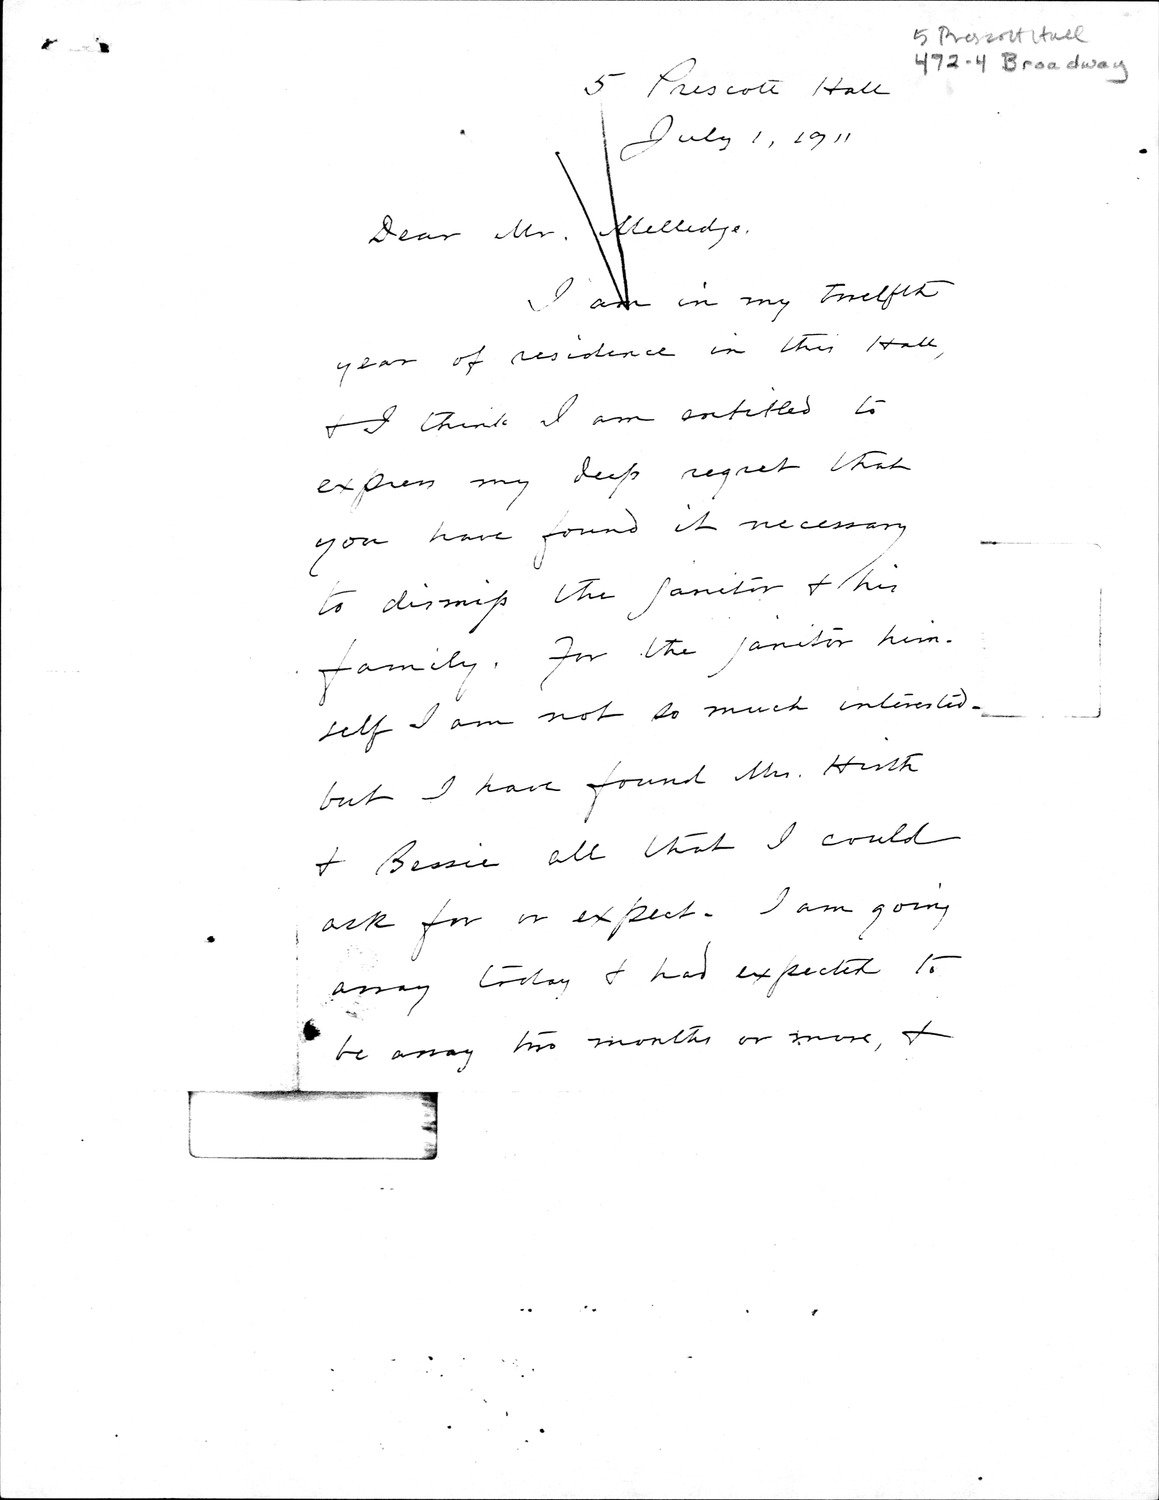 5 Prescott Hall
472-4 Broadway
5 Prescott Hall
July 1, 1911
Dear Mr. Melledge.
I am in my twelfth
year of residence in this Hall,
& I think I am entitled to
express my deep regret that
you have found it necessary
to dismiss the janitor & his
family. For the janitor him-
self I am not so much interested-
but I have found Mrs. Hirth
& Bessie all that I could
ask for or expect. I am going
away today & had expected to
be away two months or more, &